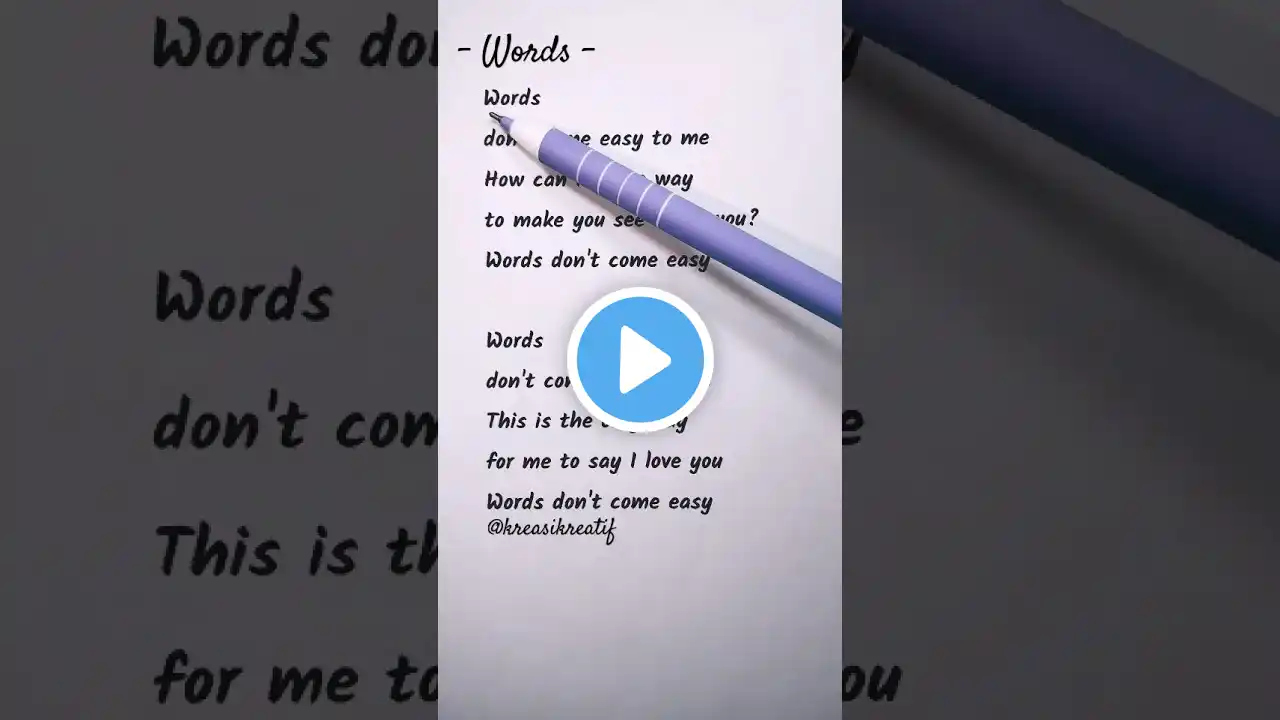 - Words -
Words
easy to me
How can way
to make you see you?
Words don't come easy
Words
don't
This is the
for me to say I love you
Words don't come easy
@kreasikreatif